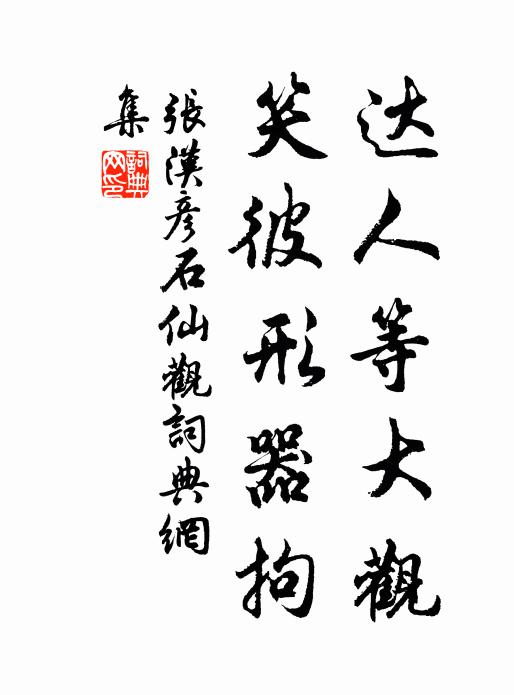 达人等大觀
笑彼形器拘
張漢彦石仙觀詞典網
集
詞典
网印